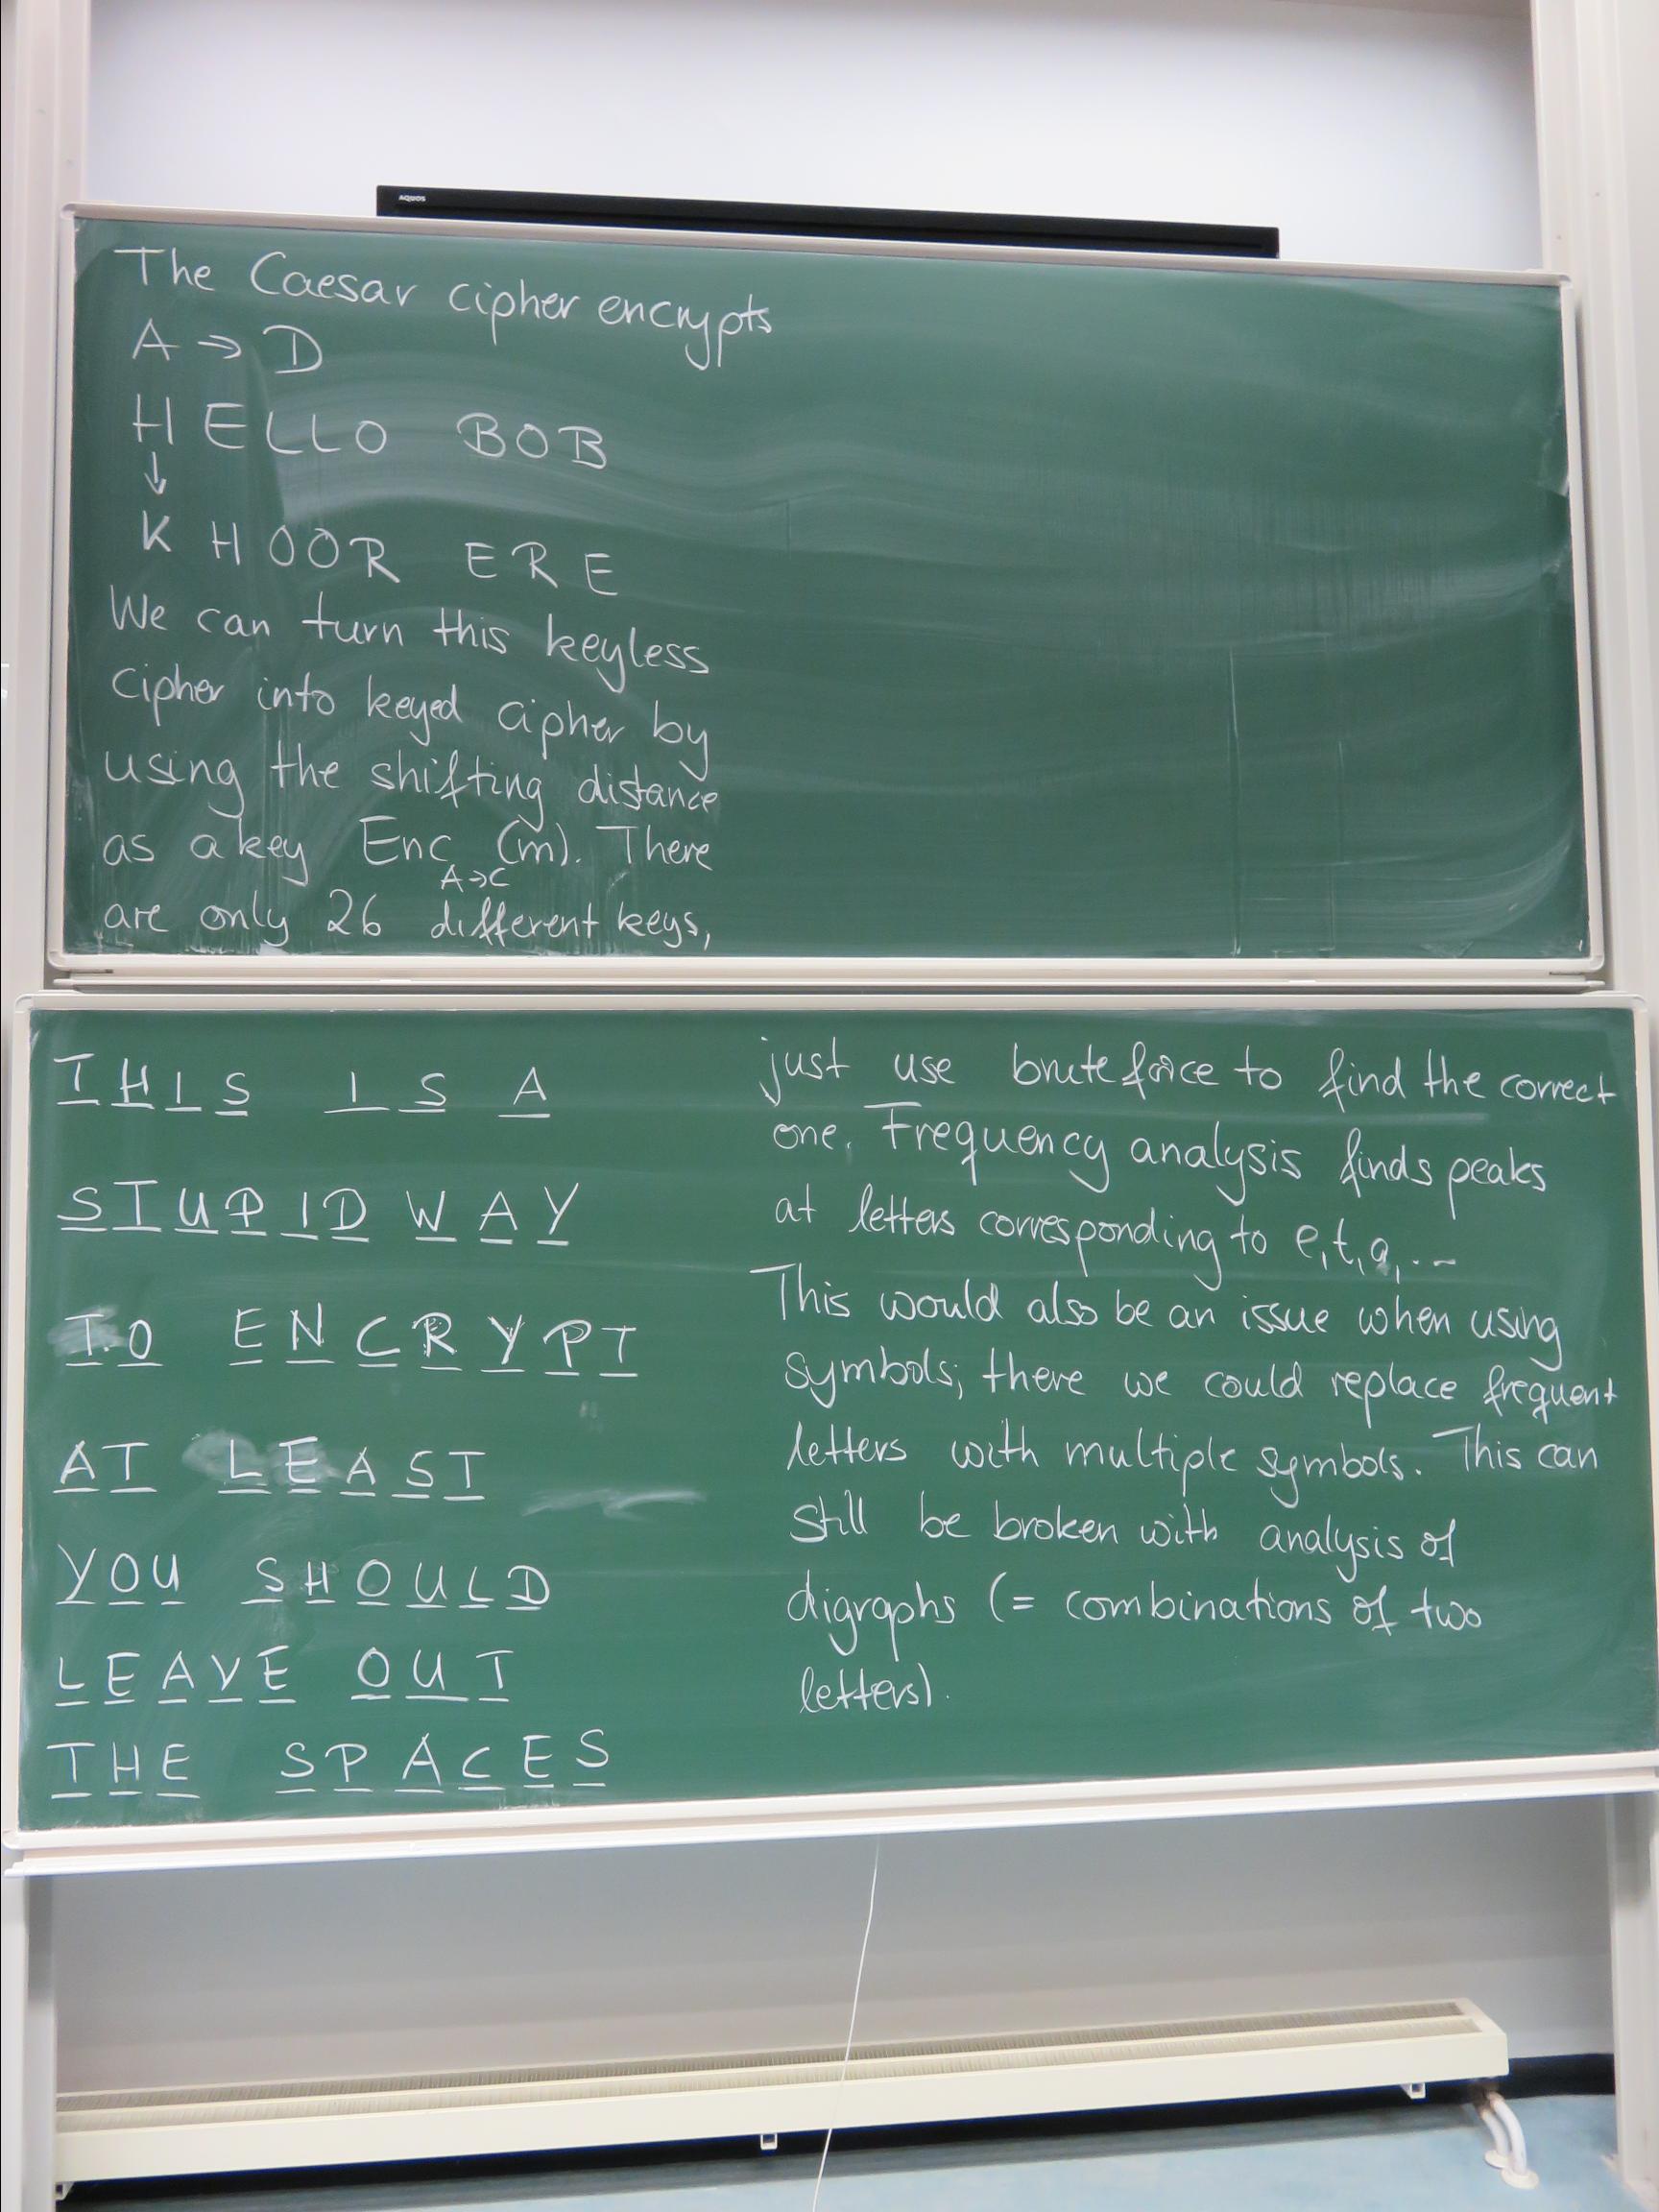 AQUOS
The Caesar cipher encrypts
A → D
HELLO BOB
↓
KHOOR ERE
We can turn this keyless
cipher into keyed cipher by
using the shifting distance
as a key Enc (m). There
A→C
are only 26 different keys,
THIS IS A
STUPID WAY
TO ENCRYPT
AT LEAST
YOU SHOULD
LEAVE OUT
THE SPACES
just use brute force to find the correct
one. Frequency analysis finds peaks
at letters corresponding to e,t,a,...
This would also be an issue when using
symbols; there we could replace frequent
letters with multiple symbols. This can
still be broken with analysis of
digraphs (= combinations of two
letters).